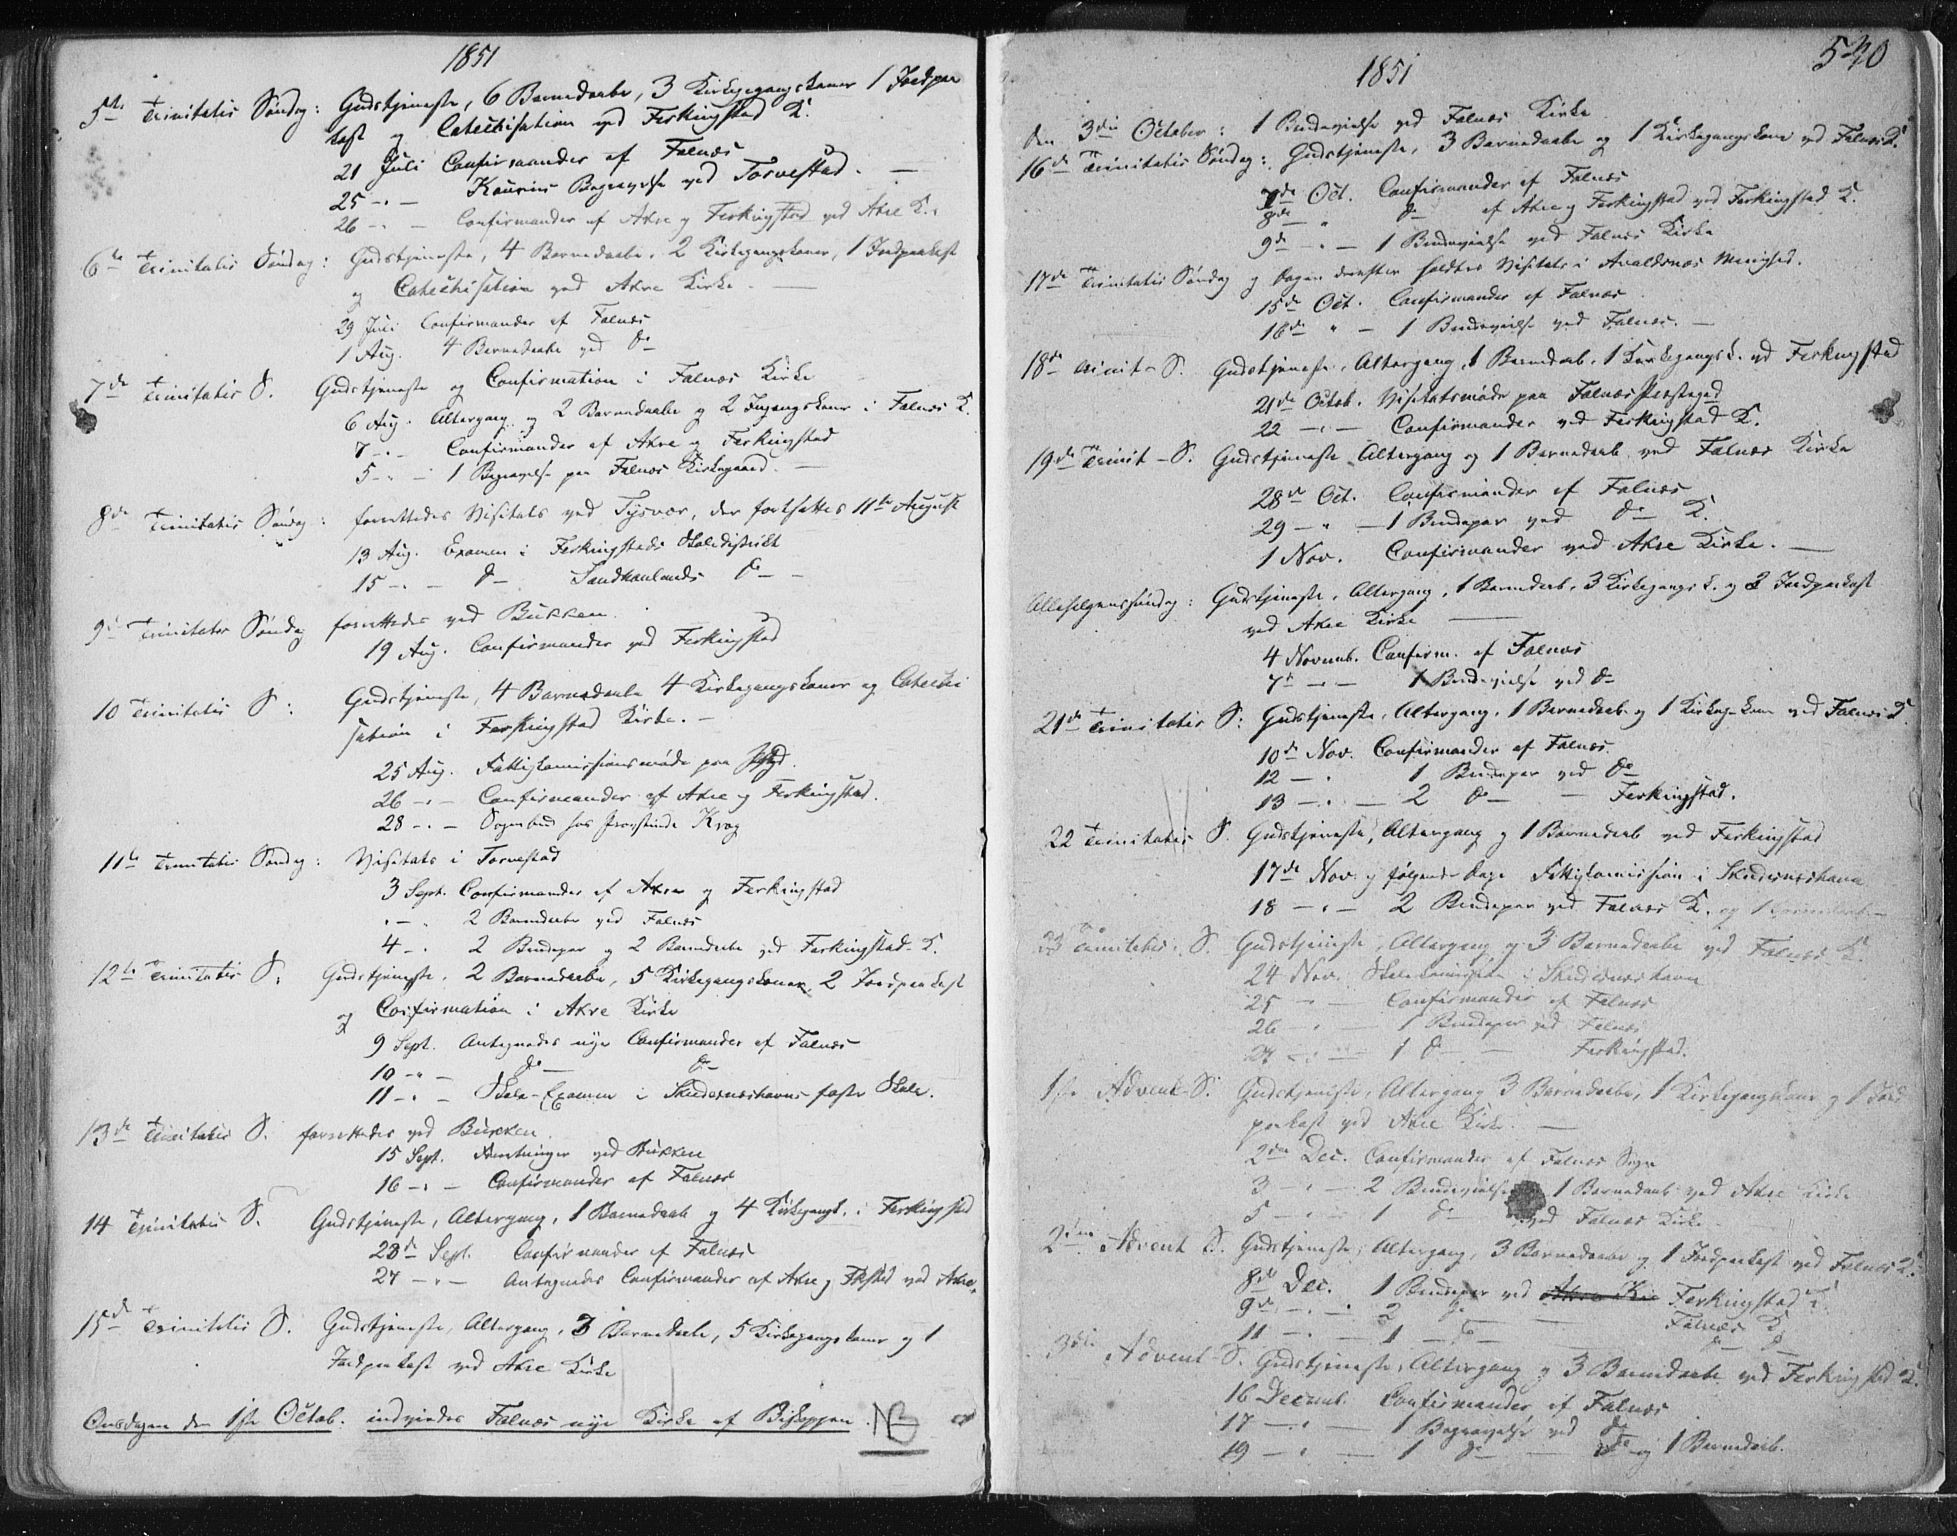 1851
5te Trinitatis Søndag: Gudstjeneste, 6 Barnedaabe, 3 Kirkegangskoner 1 Jordpaa
kast og Catechisation ved Ferkingstad K.
21 Juli Confirmander af Falnæs
25 - " - Begravelse ved Torvestad. —
26 - " - Confirmander af Akre og Ferkingstad ved Akre K.
6te Trinitatis Søndag: Gudstjeneste, 4 Barnedaabe, 2 Kirkegangskoner, 1 Jordpaakast
og Catechisation ved Akre Kirke. —
29 Juli Confirmander af Falnæs
1 Aug. 4 Barnedaabe ved do
7de Trinitatis S. Gudstjeneste og Confirmation i Falnæs Kirke
6 Aug. Altergang og 2 Barnedaabe og 2 Ingangskoner i Falnæs K.
7 - " - Confirmander af Akre og Ferkingstad
5 - " - 1 Begravelse paa Falnæs Kirkegaard. —
8de Trinitatis Søndag: forrettedes Visitats ved Tysvær, der fortsattes 11te August
13 Aug. Examen i Ferkingstads Skoledistrikt
15 - " - do Sandhaulands do -
9de Trinitatis Søndag forrettedes ved Bukken.
19 Aug. Confirmander ved Ferkingstad
10 Trinitatis S: Gudstjeneste, 4 Barnedaabe 4 Kirkegangskoner og Catechi
sation i Ferkingstad Kirke. —
25 Aug. Fattigkomissionsmøde paa
26 - " - Confirmander af Akre og Ferkingstad.
28 - " - Sognebud hos Provstinde Krog
11te Trinitatis Søndag: Visitats i Torvestad
3 Sept. Confirmander af Akre og Ferkingstad
" - " 2 Barnedaabe ved Falnæs
4 - " 2 Brudepar og 2 Barnedaabe ved Ferkingstad K.
12te Trinitatis S: Gudstjeneste, 2 Barnedaabe, 5 Kirkegangskoner, 2 Jordpaakast
og Confirmation i Akre Kirke
9 Sept. Antegnedes nye Confirmander af Falnæs
10 - " - do — do
11 - " - Skole-Examen i Skudesnæshavns faste Skole.
13de Trinitatis S. forrettedes ved Bukken.
15 Sept. ved Bukken
16 - " - Confirmander af Falnæs
14 Trinitatis S. Gudstjeneste, Altergang, 1 Barnedaab og 4 Kirkegangk. i Ferkingstad
23de Sept. Confirmander af Falnæs
27 - " - Antegnedes Confirmander af Akre og Fkstad ved Akre
15de Trinitatis S. Gudstjeneste, Altergang, 3 Barnedaabe, 5 Kirkegangskoner og 1
Jordpaakast ved Akre Kirke
Onsdagen den 1ste Octob. indviedes Falnæs nye Kirke af Biskoppen. NB
540
1851
den 3die October: 1 Brudevielse ved Falnæs Kirke
16de Trinitatis Søndag: Gudstjeneste, 3 Barnedaabe og 1 Kirkegangskone ved Falnæs K.
7de Oct. Confirmander af Falnæs
8de " do af Akre og Ferkingstad ved Ferkingstad K.
9de - " - 1 Brudevielse ved Falnæs Kirke
17de Trinitatis Søndag og Dagen derefter holdtes Visitats i Avaldsnæs Menighed.
15de Oct. Confirmander af Falnæs
16de " - 1 Brudevielse ved Falnæs. —
18de Trinit - S. Gudstjeneste, Altergang, 1 Barnedaab, 1 Kirkegangsk. ved Ferkingstad
21de Octob. Visitatsmøde paa Falnæs Præstegaard
22 - " - Confirmander ved Ferkingstad K.
19de Trinit - S. Gudstjeneste Altergang og 1 Barnedaab ved Falnæs Kirke
28de Oct. Confirmander af Falnæs
29 - " - 1 Brudepar ved do K.
1 Nov. Confirmander ved Akre Kirke. —
Allehelgenssøndag: Gudstjeneste, Altergang, 1 Barnedaab, 3 Kirkegangsk. og 2 Jordpaakast
ved Akre Kirke —
4 Novemb. Confirm. af Falnæs
7de - " - 1 Brudevielse ved do
21de Trinitatis S: Gudstjeneste, Altergang, 1 Barnedaab og 1 Kirkeg-kone ved Falnæs K.
10de Nov. Confirmander af Falnæs.
12 - " 1 Brudepar ved do
13 - " - 2 do — Ferkingstad.
22 Trinitatis S. Gudstjeneste, Altergang og 1 Barnedaab ved Ferkingstad
17de Nov. og følgende Dage Fattigkomission i Skudesnæshavn
18 - " - 2 Brudepar ved Falnæs K. og 1 Barnedaab -
23 Trinitatis S. Gudstjeneste Altergang og 3 Barnedaabe ved Falnæs K.
24 Nov. Skolekomission i Skudesnæshavn
25 - " - Confirmander af Falnæs
26 " - 1 Brudepar ved Falnæs
27 - " - 1 do — Ferkingstad.
1ste Advent-S. Gudstjeneste, Altergang 3 Barnedaabe, 1 Kirkegangskone og 1 Jord
paakast ved Akre Kirke. —
2den Dec. Confirmander af Falnæs Sogn
3 - " - 2 Brudevielser 1 Barnedaab ved Akre Kirke
5 - " - 1 do ved Falnæs Kirke
2den Advent S. Gudstjeneste, Altergang, 3 Barnedaabe og 1 Jordpaakast ved Falnæs K.
8de Dec. 1 Brudepar ved Akre Ki Ferkingstad K.
9de - " - 2 do — Falnæs K
11 - " - 1 - do — do do
3die Advent-S. Gudstjeneste, Altergang og 3 Barnedaabe ved Ferkingstad K.
16 Decemb. Confirmander af Falnæs
17 - " - 1 Begravelse ved do
19 - " - 1 do — do og 1 Barnedaab.